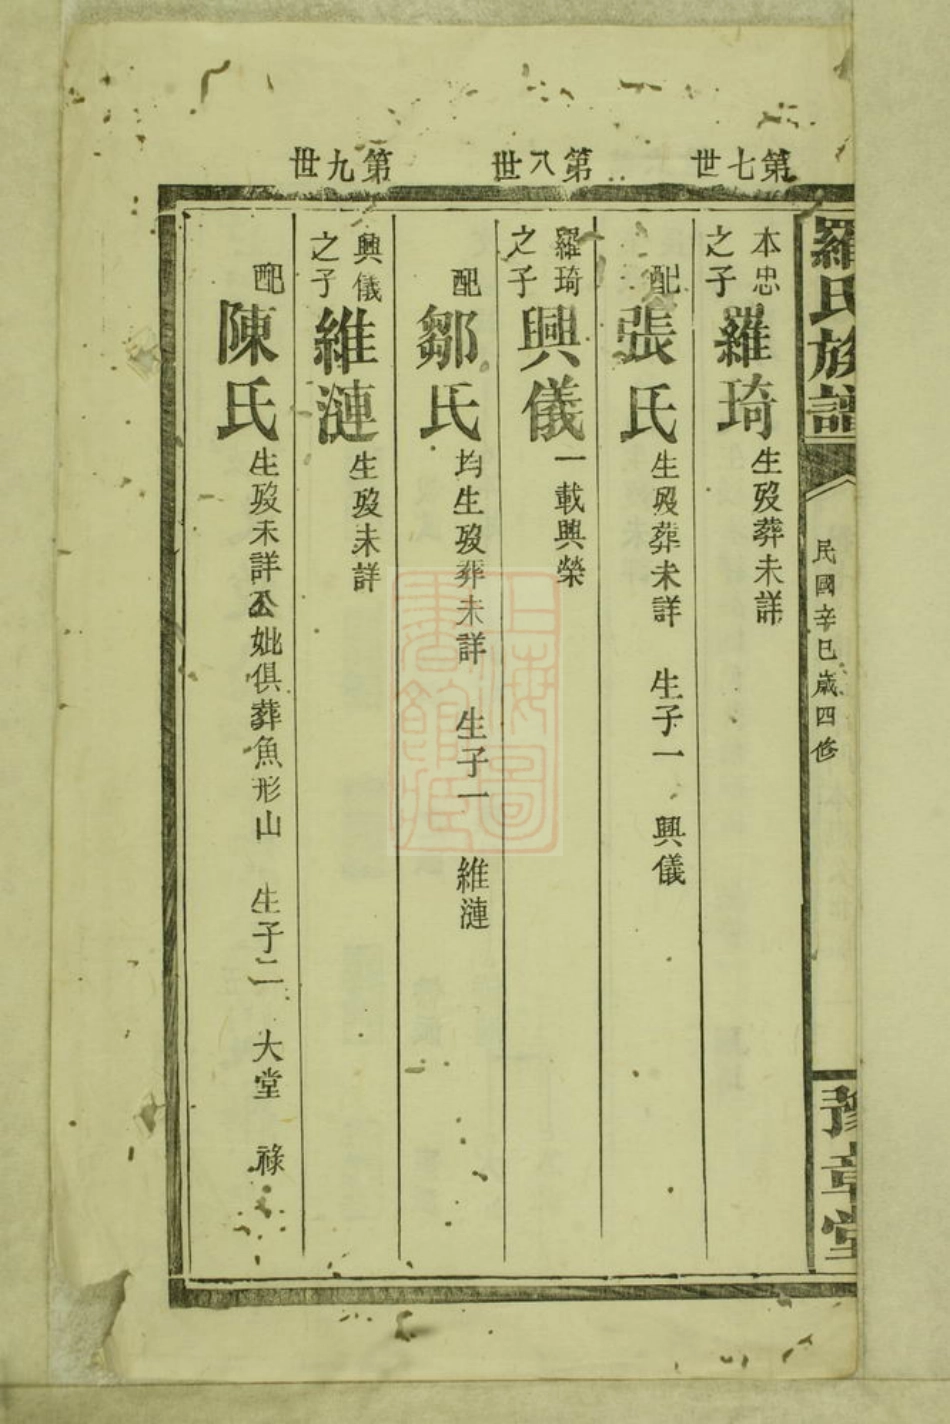 羅氏族譜
民國辛巳歲四修
豫章堂
第七世
本忠之子
羅琦
生歿葬未詳
配
張氏
生歿葬未詳 生子一 興儀
第八世
羅琦之子
興儀
一載興榮
配
鄒氏
均生歿葬未詳 生子一 維漣
第九世
興儀之子
維漣
生歿未詳
配
陳氏
生歿未詳公妣俱葬魚形山 生子二 大堂 祿
上海圖書館藏